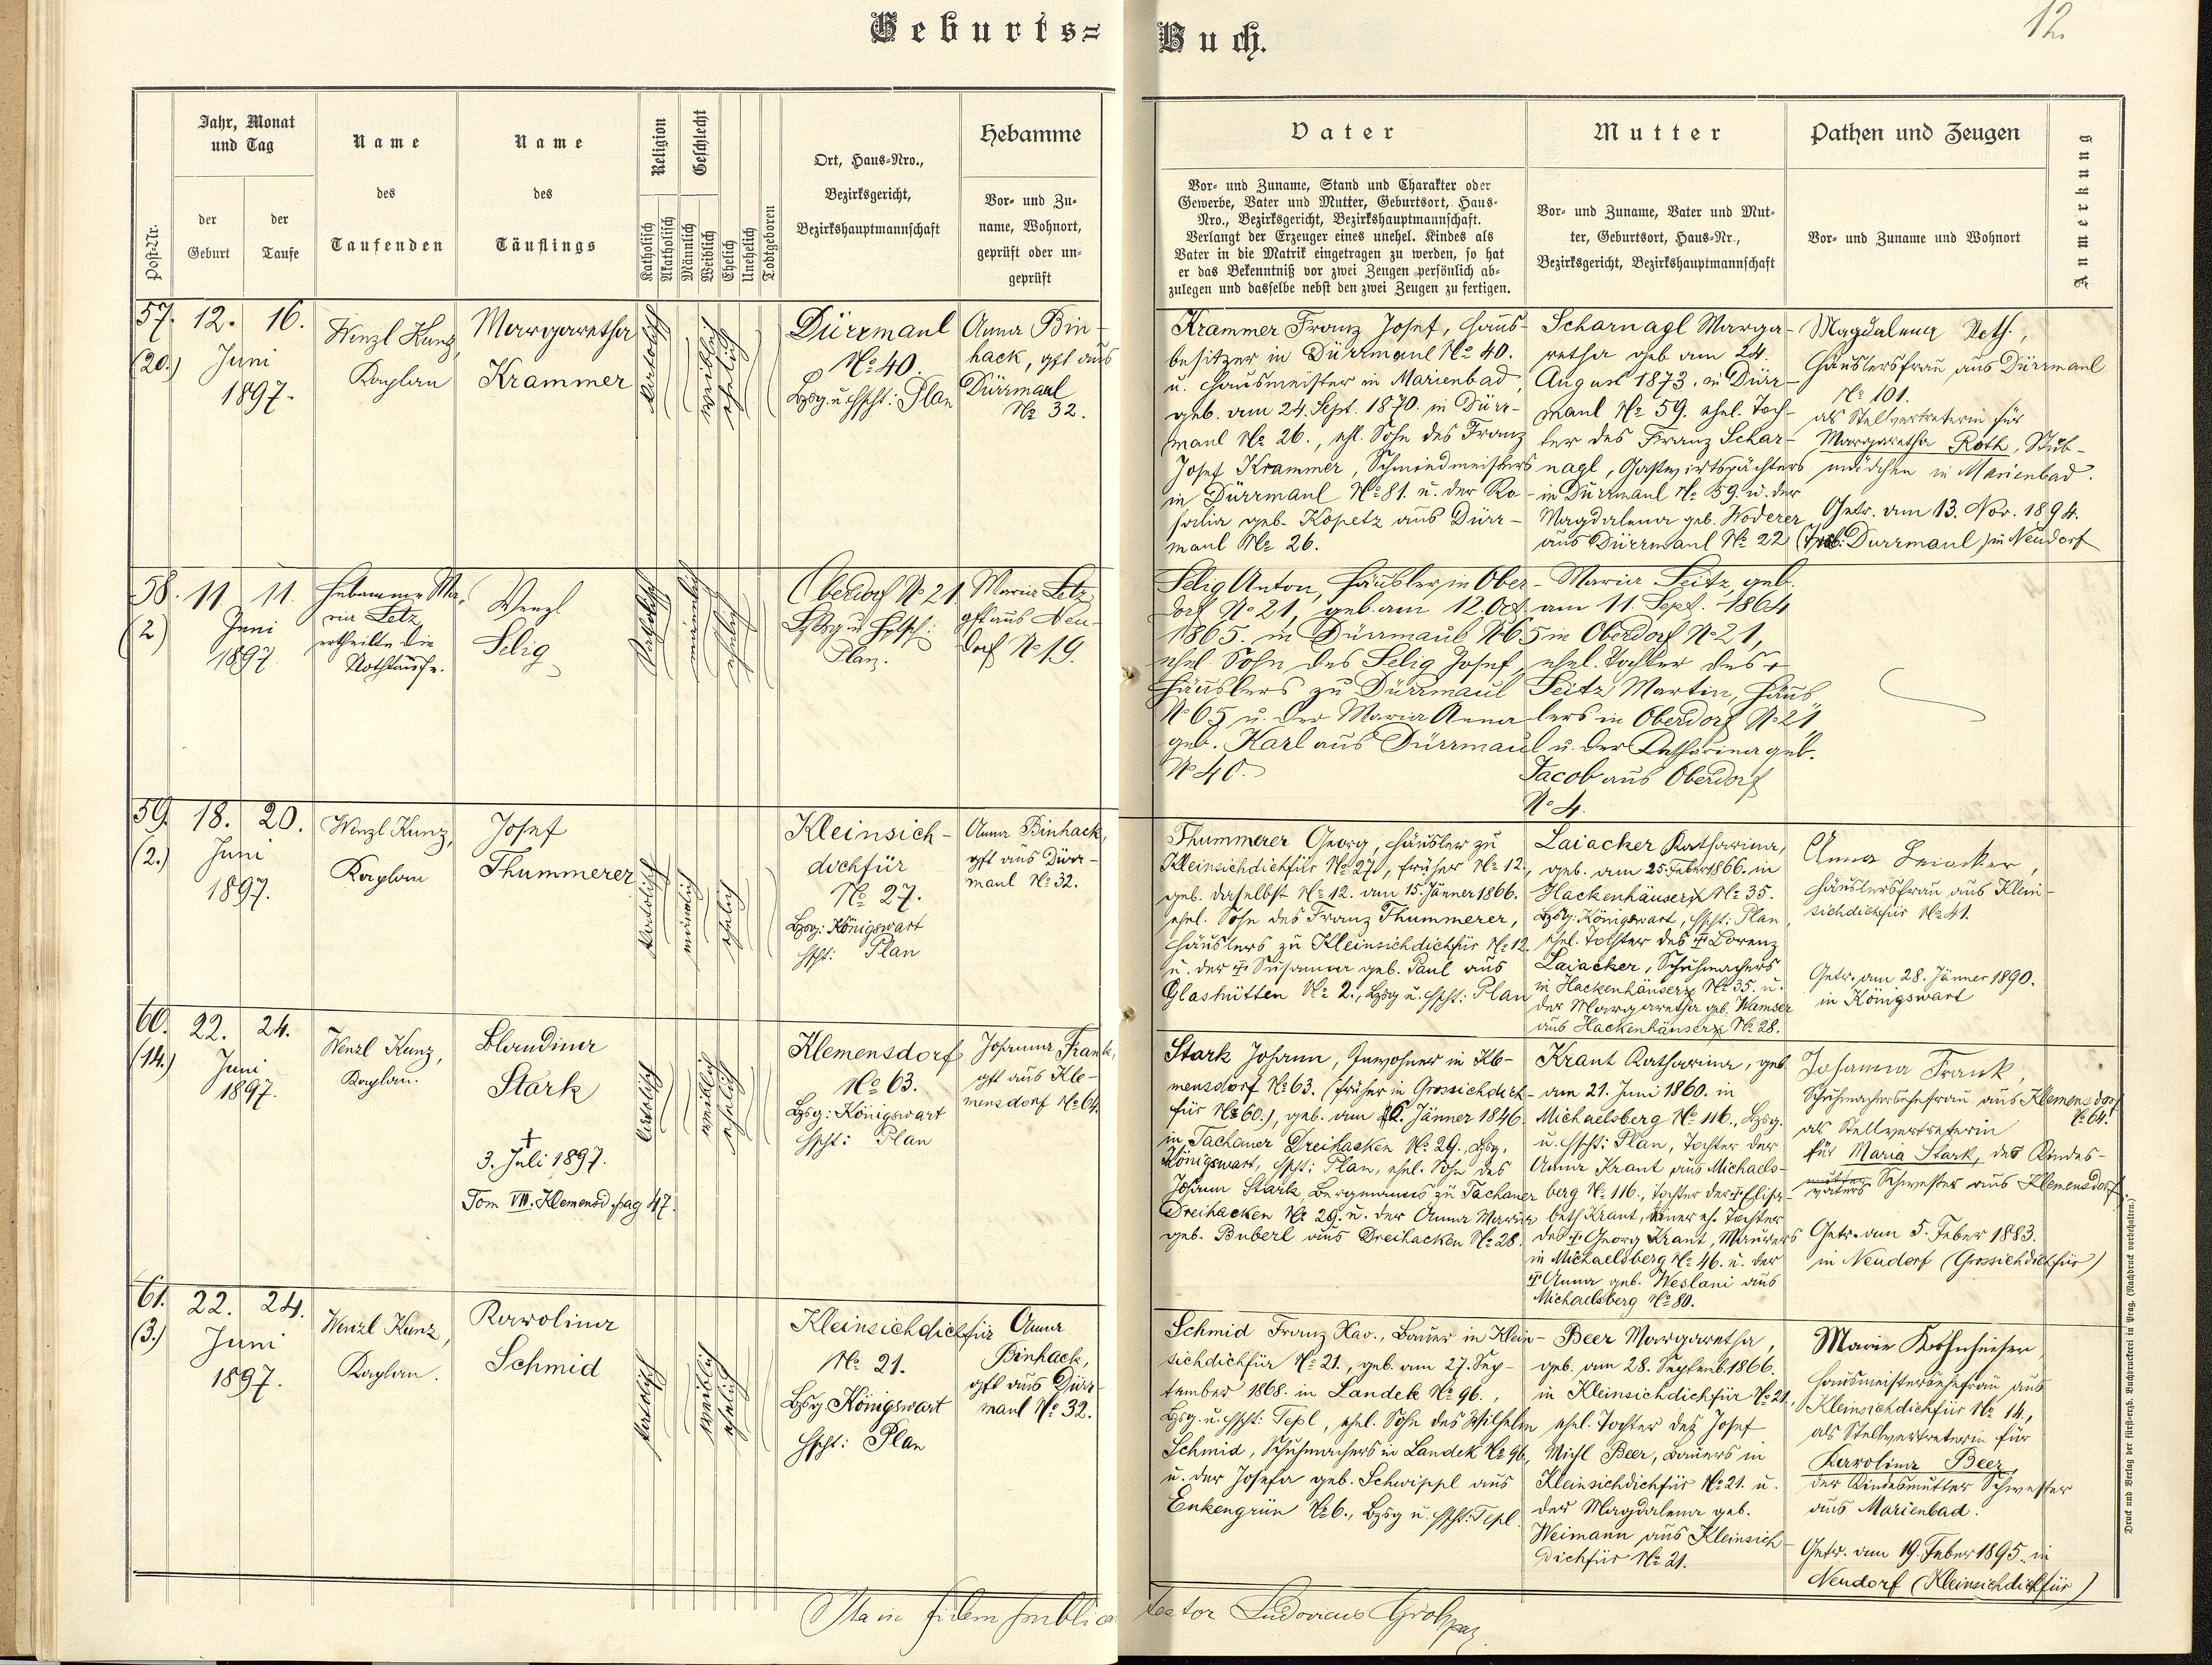 Geburts=
Buch.
12.
Post-Nr.
Jahr, Monat
und Tag
der
Geburt
der
Taufe
Name
des
Taufenden
Name
des
Täuflings
Religion
Katholisch
Akatholisch
Geschlecht
Männlich
Weiblich
Ehelich
Unehelich
Todtgeboren
Ort, Haus=Nro.,
Bezirksgericht,
Bezirkshauptmannschaft
Hebamme
Vor= und Zu=
name, Wohnort,
geprüft oder un=
geprüft
Vater
Vor= und Zuname, Stand und Charakter oder
Gewerbe, Vater und Mutter, Geburtsort, Haus=
Nro., Bezirksgericht, Bezirkshauptmannschaft.
Verlangt der Erzeuger eines unehel. Kindes als
Vater in die Matrik eingetragen zu werden, so hat
er das Bekenntniß vor zwei Zeugen persönlich ab=
zulegen und dasselbe nebst den zwei Zeugen zu fertigen.
Mutter
Vor= und Zuname, Vater und Mut=
ter, Geburtsort, Haus=Nr.,
Bezirksgericht, Bezirkshauptmannschaft
Pathen und Zeugen
Vor= und Zuname und Wohnort
Anmerkung
57.
(20.)
12. 16.
Juni
1897.
Wenzl Kunz,
Kaplan
Margaretha
Krammer
katholisch
weiblich
ehelich
Dürrmaul
No 40.
Bzsg. u. Hpscht: Plan
Anna Bin-
hack, gft aus
Dürrmaul
No 32.
Krammer Franz Josef, Haus-
besitzer in Dürrmaul No 40.
u. Hausmeister in Marienbad,
geb. am 24. Sept. 1870. in Dürr-
maul No 26., ehl. Sohn des Franz
Josef Krammer, Schmiedmeisters
in Dürrmaul No 81. u. der Ro-
salia geb. Kopetz aus Dürr-
maul No 26.
Scharnagl Marga-
retha geb am 24.
August 1873. in Dürr-
maul No 59. ehel. Toch-
ter des Franz Schar-
nagl, Gastwirtspächters
in Dürrmaul No 59. u. der
Magdalena geb. Woderer
aus Dürrmaul No 22
Magdalena
Häuslersfrau aus Dürrmaul
No 101.
als Stellvertreterin für
Margaretha Roth, Stub-
mädchen in Marienbad.
Getr. am 13. Nov. 1894.
Dürrmaul) in Neudorf
58.
(2)
11 11.
Juni
1897
Hebamme Ma-
ria Letz
ertheilte die
Nothtaufe.
Wenzl
Selig
katholisch
männlich
ehelich
Oberdorf No 21
Bzsg u. Hptsch:
Plan.
Maria Letz
gft aus Neu-
dorf No 19.
Selig Anton, Häusler in Ober-
dorf No 21, geb. am 12. Oct.
1865. in Dürrmaul No 65
ehel Sohn des Selig Josef,
Häuslers zu Dürrmaul
No 65 u. der Maria Anna
geb. Karl aus Dürrmaul
No 40.
Maria Seitz, geb.
am 11. Sept. 1864
in Oberdorf No 21,
ehel. Tochter des +
Seitz Martin, Häus-
lers in Oberdorf No 21
u. der Katharina geb.
Jacob aus Oberdorf
No 4.
59.
(2.)
18. 20.
Juni
1897.
Wenzl Kunz,
Kaplan
Josef
Thummerer
katholisch
männlich
ehelich
Kleinsich-
dichfür
No 27.
Bzsg: Königswart
Hpscht: Plan
Anna Binhack,
gft aus Dürr-
maul No 32.
Thummerer Georg, Häusler zu
Kleinsichdichfür No 27, früher No 12.,
geb. daselbst No 12. am 15. Jänner 1866.
ehel. Sohn des Franz Thummerer,
Häuslers zu Kleinsichdichfür No 12
u. der + Susanna geb. Paul aus
Glashütten No 2., Bzsg u. Hpscht: Plan
Laiacker Katharina,
geb. am 25. Feber 1866. in
Hackenhäuser No 35.
Bzsg: Königswart, Hpscht: Plan
ehel. Tochter des + Lorenz
Laiacker, Schuhmachers
in Hackenhäuser No 35. u.
der Margaretha geb. Wamser
aus Hackenhäuser No 28.
Anna Laiacker,
Häuslersfrau aus Klein-
sichdichfür No 41.
Getr. am 28. Jänner 1890.
in Königswart
60.
(14.)
22. 24.
Juni
1897.
Wenzl Kunz,
Kaplan.
Klaudina
Stark
†
3. Juli 1897.
Tom VII. Klemensd. pag 47.
katholisch
weiblich
ehelich
Klemensdorf
No 63.
Bzsg: Königswart
Hpscht: Plan
Johanna Frank,
gft aus Kle-
mensdorf No 64.
Stark Johann, Inwohner in Kle-
mensdorf No 63. (früher in Grossichdich-
für No 60.), geb. am Jänner 1846.
in Tachauer Dreihacken No 29., Bzsg.
Königswart, Hpscht: Plan, ehel. Sohn des
Johann Stark, Bergmanns zu Tachauer
Dreihacken No 29. u. der Anna Maria
geb. Buberl aus Dreihacken No 28.
Kraut Katharina, geb
am 21. Juni 1860. in
Michaelsberg No 116., Bzsg.
u. Hpscht: Plan, Tochter der
Anna Kraut aus Michaels-
berg No 116., Tochter der + Elisa-
beth Kraut, einer eh. Tochter
des + Georg Kraut, Maurers
in Michaelsberg No 46. u. der
+ Anna geb. Weslani aus
Michaelsberg No 80.
Johanna Frank,
Schuhmachersehefrau aus Klemensdorf
No 64.
als Stellvertreterin
für Maria Stark, des Kindes-
mutter
vaters Schwester aus Klemensdorf.
Getr. am 5. Feber 1883.
in Neudorf (Grossichdichfür)
61.
(3.)
22. 24.
Juni
1897.
Wenzl Kunz,
Kaplan.
Karolina
Schmid
katholisch
weiblich
ehelich
Kleinsichdichfür
No 21.
Bzsg Königswart
Hpscht: Plan
Anna
Binhack,
gft aus Dürr-
maul No 32.
Schmid Franz Xav., Bauer in Klein-
sichdichfür No 21., geb. am 27. Sep-
tember 1868. in Landek No 96.,
Bzsg. u. Hpscht: Tepl, ehel. Sohn des Wilhelm
Schmid, Schuhmachers in Landek No 96.,
u. der Josefa geb. Schwippl aus
Enkengrün No 6., Bzsg u. Hpscht: Tepl
Beer Margaretha,
geb. am 28. Septemb. 1866.
in Kleinsichdichfür No 21.,
ehel. Tochter des Josef
Michl Beer, Bauers in
Kleinsichdichfür No 21. u.
der Magdalena geb.
Weimann aus Kleinsich-
dichfür No 21.
Marie
Hausmeistersehefrau aus
Kleinsichdichfür No 14.,
als Stellvertreterin für
Karolina Beer,
der Kindesmutter Schwester
aus Marienbad.
Getr. am 19. Feber 1895. in
Neudorf (Kleinsichdichfür)
Ita in fidem publicam
testor Ludovicus
Druck und Verlag der fürst=erzb. Buchdruckerei in Prag. (Nachdruck vorbehalten.)